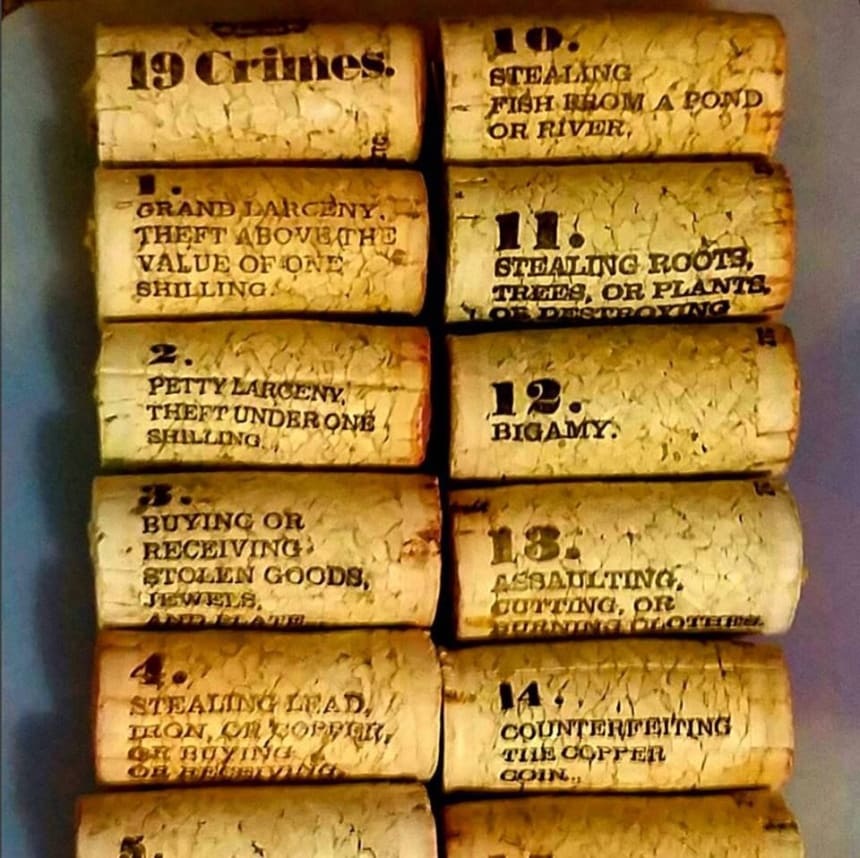 19 Crimes.
1.
GRAND LARCENY,
THEFT ABOVE THE
VALUE OF ONE
SHILLING.
2.
PETTY LARCENY,
THEFT UNDER ONE
SHILLING.
3.
BUYING OR
RECEIVING
STOLEN GOODS,
JEWELS,
AND PLATE
4.
STEALING LEAD,
IRON, OR COPPER,
OR BUYING
OR RECEIVING.
5.
10.
STEALING
FISH FROM A POND
OR RIVER.
11.
STEALING ROOTS,
TREES, OR PLANTS,
OR DESTROYING
12.
BIGAMY.
13.
ASSAULTING,
CUTTING, OR
BURNING CLOTHES.
14.
COUNTERFEITING
THE COPPER
COIN.